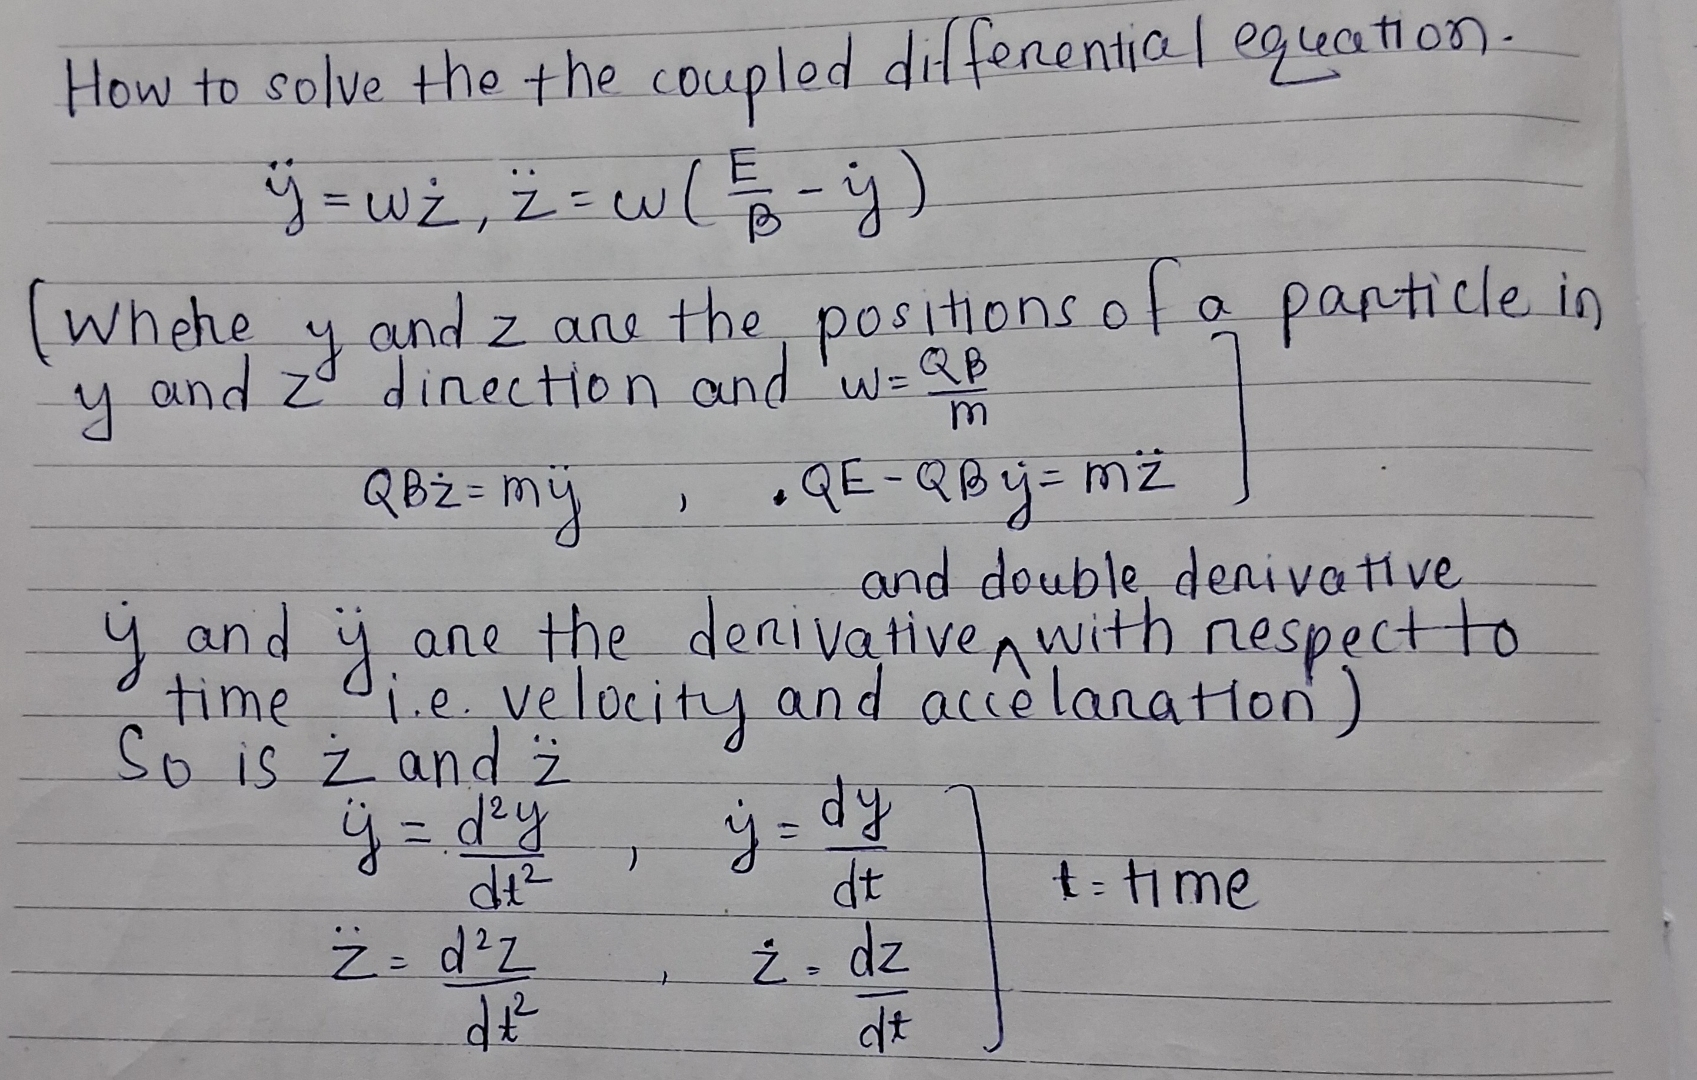 How to solve the the coupled differential equation.
ÿ = wż, z̈ = w(E/B - ẏ)
(Where y and z are the positions of a particle in
y and z direction and w = QB/m
QBż = mÿ , . QE - QBẏ = mz̈ ]
and double derivative
ẏ and ÿ are the derivative ^ with respect to
time i.e. velocity and accelaration)
So is ż and z̈
ÿ = d²y/dt² , ẏ = dy/dt
t = time
z̈ = d²z/dt² , ż = dz/dt